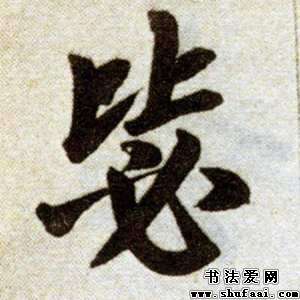 毖
书法爱网
www.shufaai.com